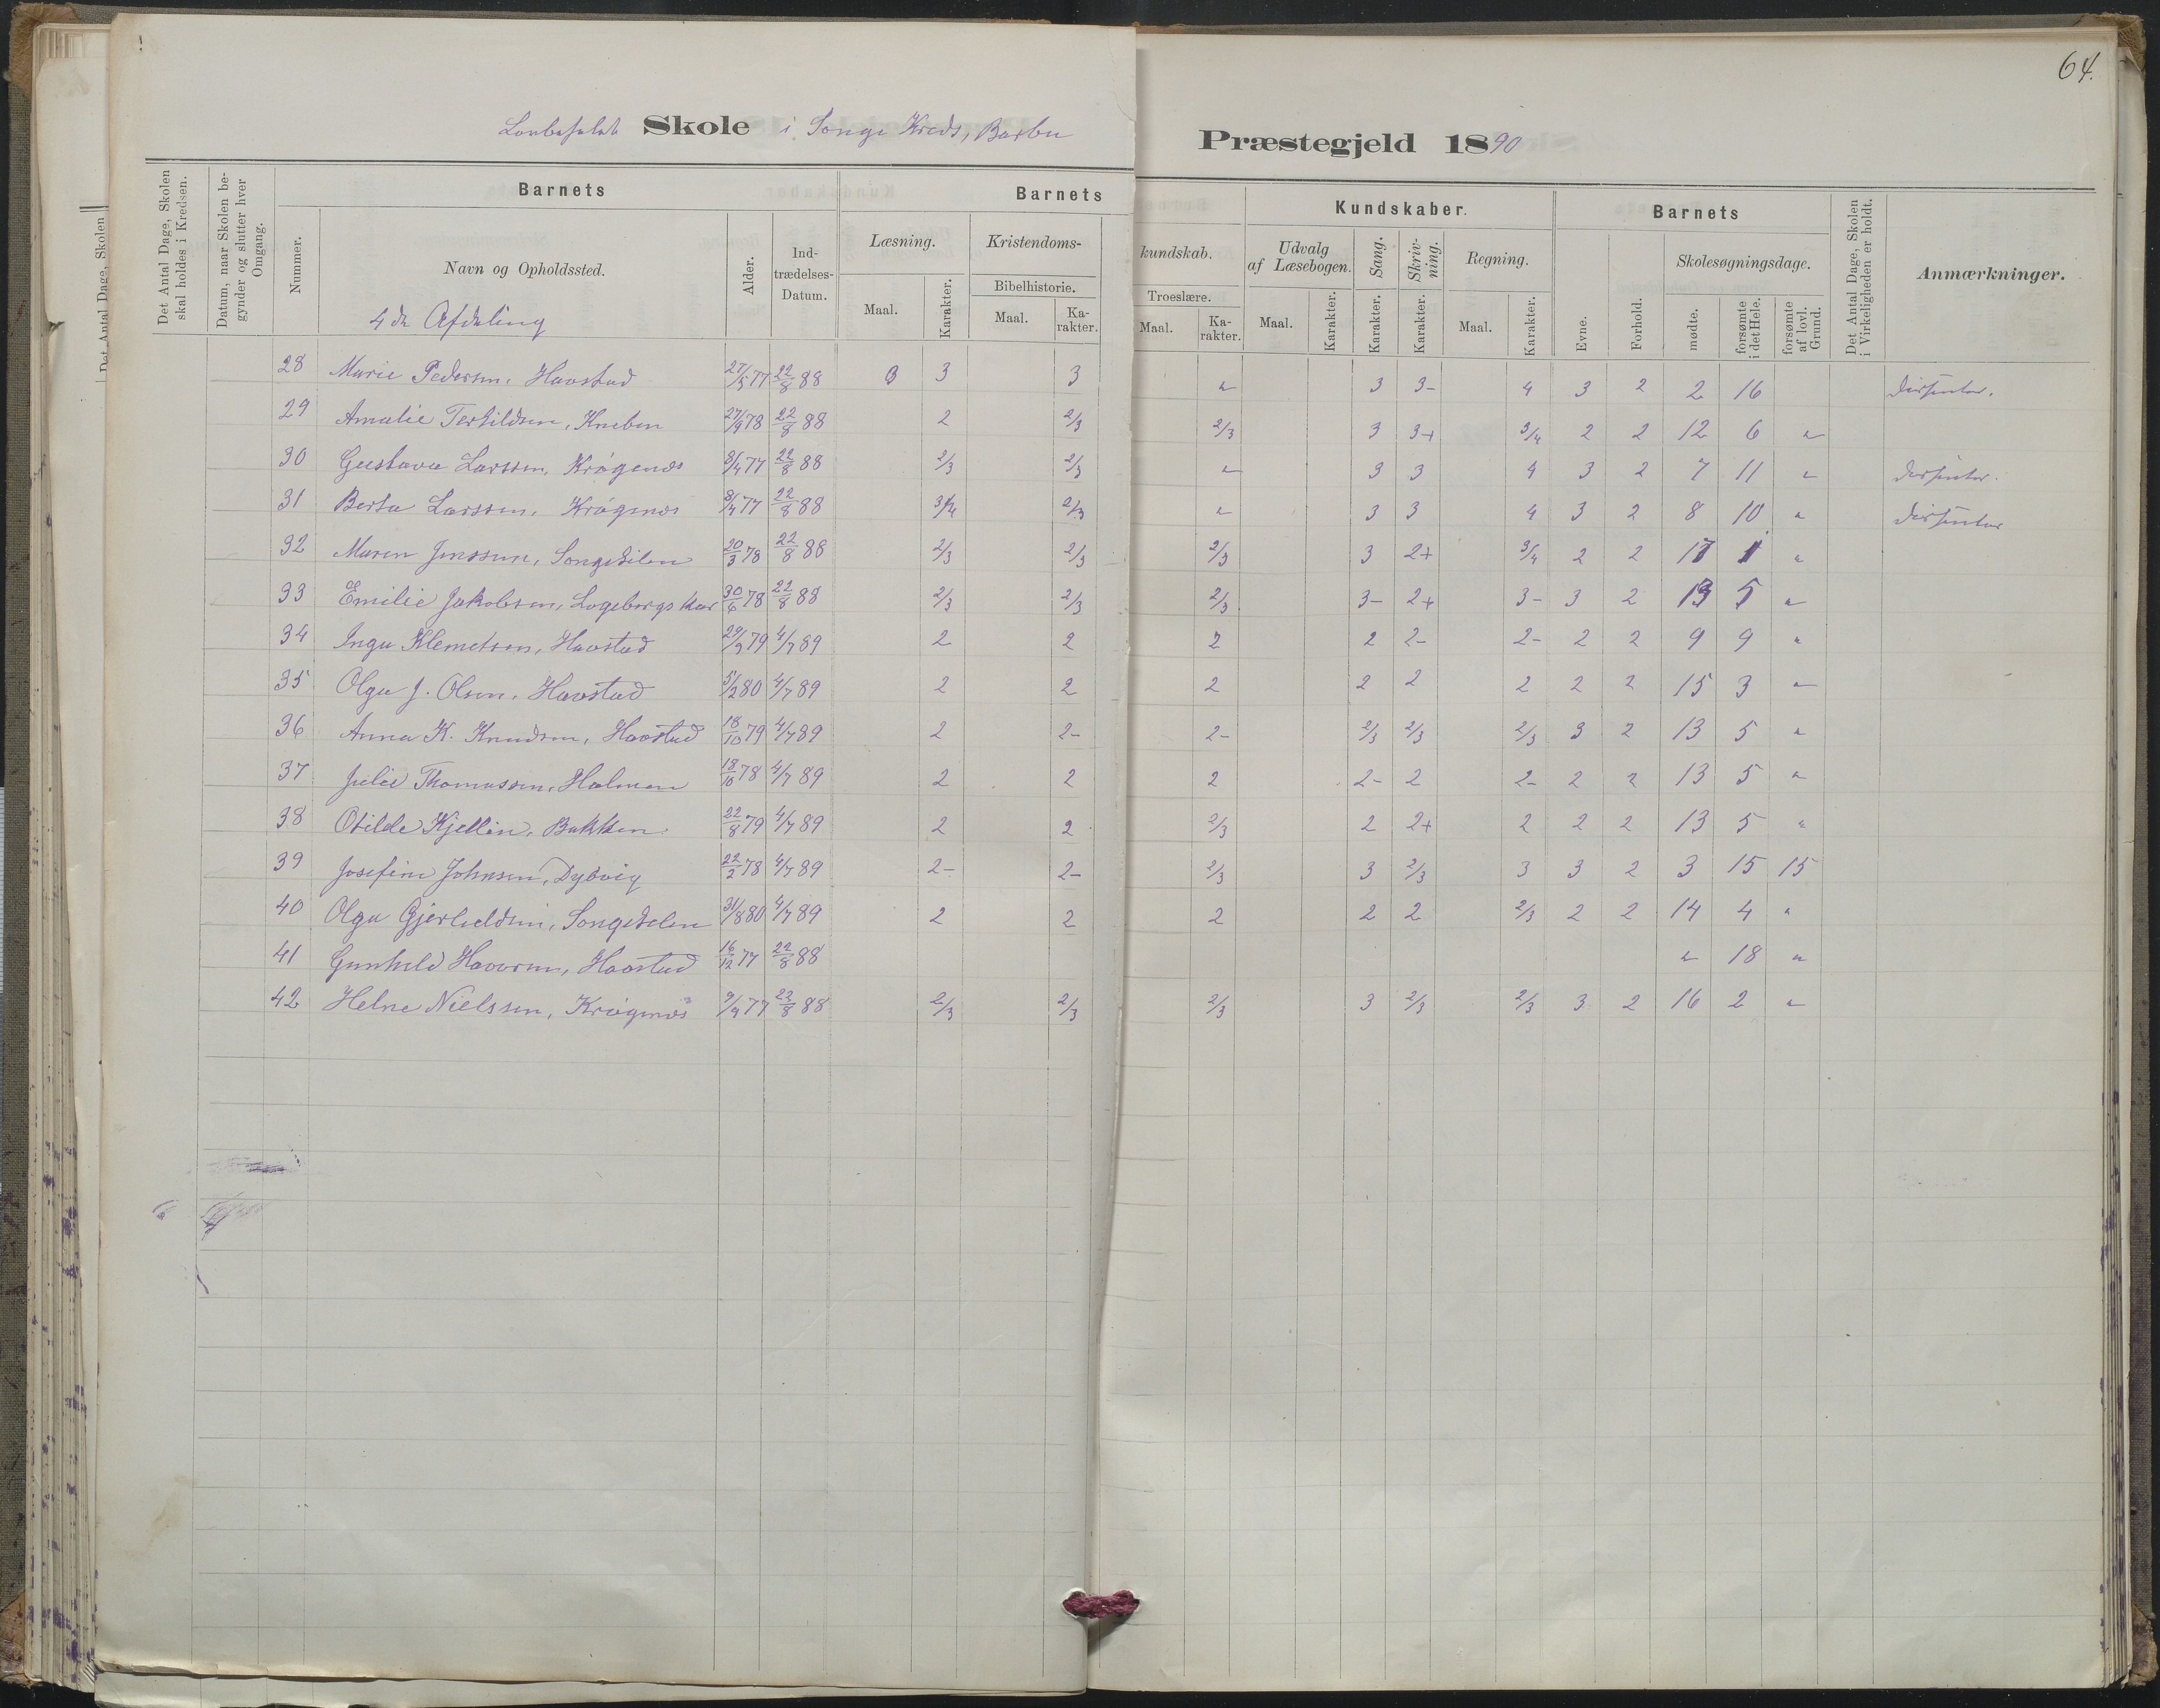 64.
Lovbefalet Skole i Songe Kreds, Barbu Præstegjeld 1890
Det Antal Dage, Skolen skal holdes i Kredsen.
Datum, naar Skolen begynder og slutter hver Omgang.
Barnets
Nummer.
Navn og Opholdssted.
4de Afdeling
Alder.
Ind-trædelses-Datum.
Barnets Kundskaber.
Læsning. Maal. Karakter.
Kristendoms-kundskab.
Bibelhistorie. Maal. Ka-rakter.
Troeslære. Maal. Ka-rakter.
Udvalg af Læsebogen. Maal. Karakter.
Sang. Karakter.
Skriv-ning. Karakter.
Regning. Maal. Karakter.
Barnets
Evne. Forhold.
Skolesøgningsdage.
mødte. forsømte i det Hele. forsømte af lovl. Grund.
Det Antal Dage, Skolen i Virkeligheden er holdt.
Anmærkninger.
28 Marie Pedersen, Havstad 27/5 77 22/8 88 3 3 " 3 3- 4 3 2 2 16 dissenter.
29 Amalie Terkildsen, Kneben 27/9 78 22/8 88 2 2/3 2/3 3 3+ 3/4 2 2 12 6 "
30 Gustava Larssen, Krøgenes 8/4 77 22/8 88 2/3 2/3 " 3 3 4 3 2 7 11 " dissenter.
31 Berta Larssen, Krøgenes 8/4 77 22/8 88 3/4 2/3 " 3 3 4 3 2 8 10 " dissenter
32 Maren Jenssen, Songedilen 20/3 78 22/8 88 2/3 2/3 2/3 3 2+ 3/4 2 2 17 1 "
33 Emilie Jakobsen, 30/6 78 22/8 88 2/3 2/3 2/3 3- 2+ 3- 3 2 13 5 "
34 Inga Klemetsen, Havstad 29/9 79 4/7 89 2 2 2 2 2- 2- 2 2 9 9 "
35 Olga J. Olsen, Havstad 5/2 80 4/7 89 2 2 2 2 2 2 2 2 15 3 "
36 Anna K. Knudsen, Havstad 18/10 79 4/7 89 2 2- 2- 2/3 2/3 2/3 3 2 13 5 "
37 Julie Thomassen, Holmen 18/10 78 4/7 89 2 2 2 2- 2 2- 2 2 13 5 "
38 Otilde Kjellin, Bakken 22/8 79 4/7 89 2 2 2/3 2 2+ 2 2 2 13 5 "
39 Josefine Johnsen, Dybvig 22/2 78 4/7 89 2- 2- 2/3 3 2/3 3 3 2 3 15 15
40 Olga Gjeruldsen, Songedelen 31/8 80 4/7 89 2 2 2 2 2 2/3 2 2 14 4 "
41 Gunhild Haversen, Havstad 16/12 77 22/8 88 " 18 "
42 Helne Nielssen, Krøgenes 9/9 77 22/8 88 2/3 2/3 2/3 3 2/3 2/3 3 2 16 2 "